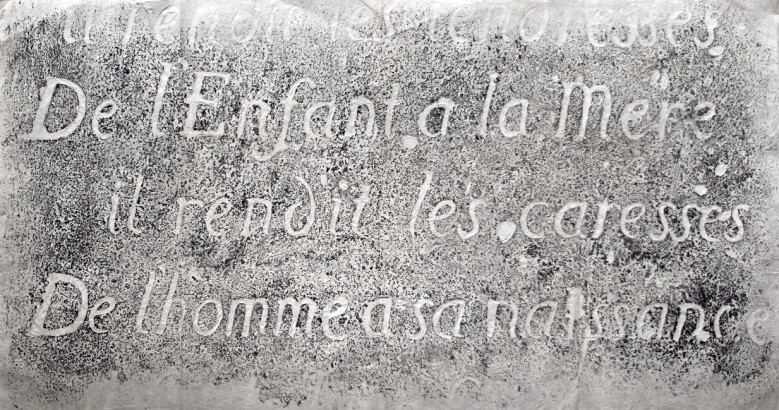 il rendit les tendresses
De l'Enfant a la Mere
il rendit les caresses
De l'homme a sa naissance